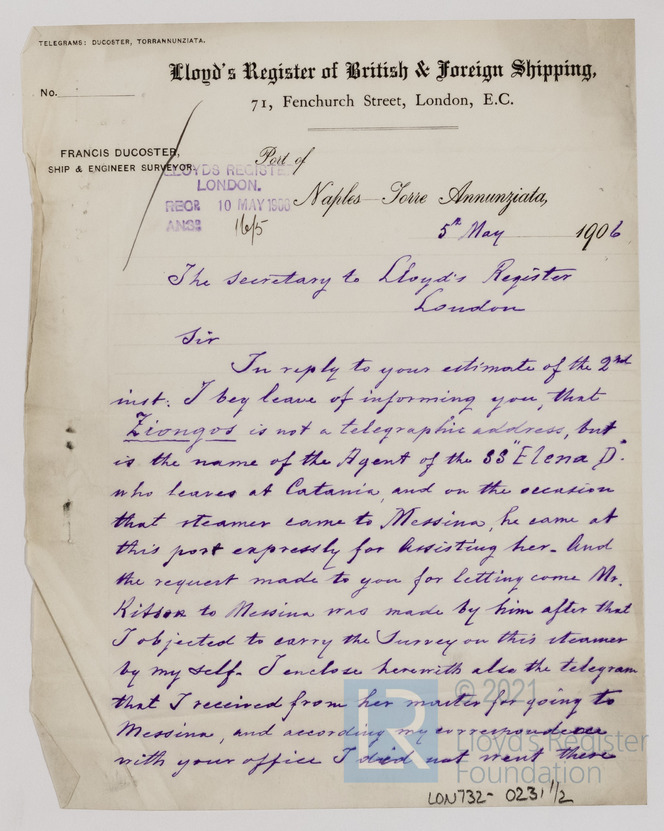 TELEGRAMS: DUCOSTER, TORRANNUNZIATA.
Lloyd's Register of British & Foreign Shipping,
No.
71, Fenchurch Street, London, E.C.
FRANCIS DUCOSTER,
SHIP & ENGINEER SURVEYOR.
Port of
LLOYDS REGISTER
LONDON.
RECD 10 MAY 1906
ANSD 16/5
Naples-Torre Annunziata,
5th May 1906
The secretary to Lloyd's Register
London
Sir
In reply to your estimate of the 2nd
inst. I bey leave of informing you, that
Ziongos is not a telegraphic address, but
is the name of the Agent of the SS "Elena D".
who leaves at Catania, and on the occasion
that steamer came to Messina, he came at
this port expressly for assisting her. And
the request made to you for letting come Mr.
to Messina was made by him after that
I objected to carry the Survey on this steamer
by my self. I enclose herewith also the telegram
that I received from her master for going to
Messina, and according my correspondence
with your office I did not went there
© 2021
LR
Lloyd's Register
Foundation
LON732- 0231 1/2